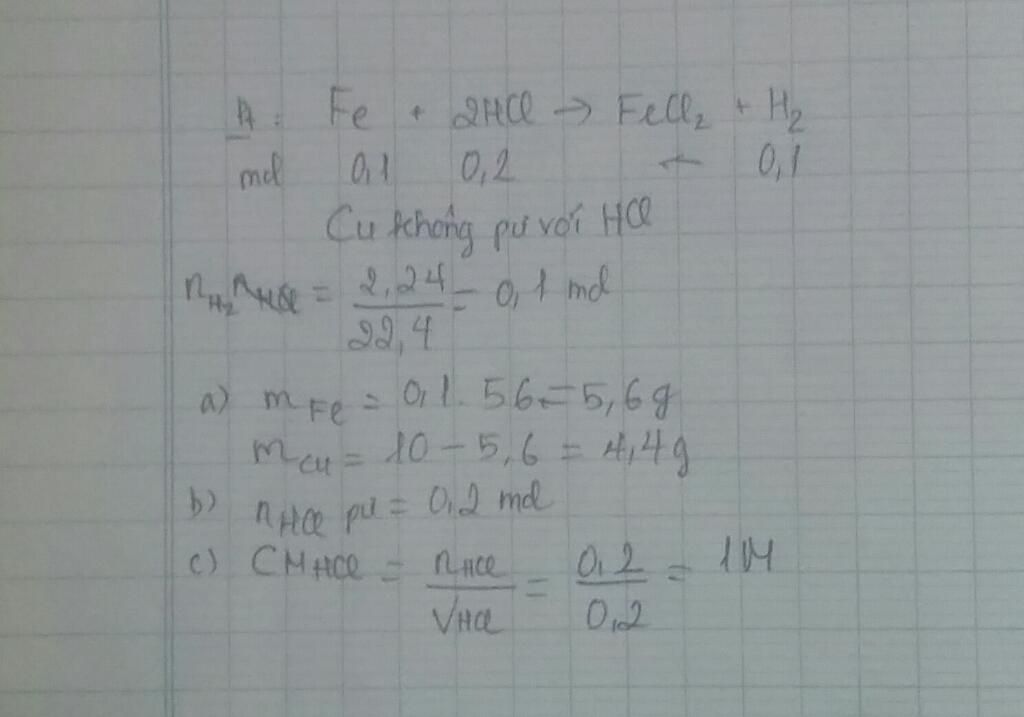 A : Fe + 2HCl → FeCl₂ + H₂
mol 0,1 0,2 ← 0,1
Cu không pư với HCl
nH₂ nHCl = 2,24/22,4 = 0,1 mol
a) mFe = 0,1 . 56 = 5,6g
mCu = 10 - 5,6 = 4,4g
b) nHCl pư = 0,2 mol
c) CMHCl = nHCl/VHCl = 0,2/0,2 = 1M